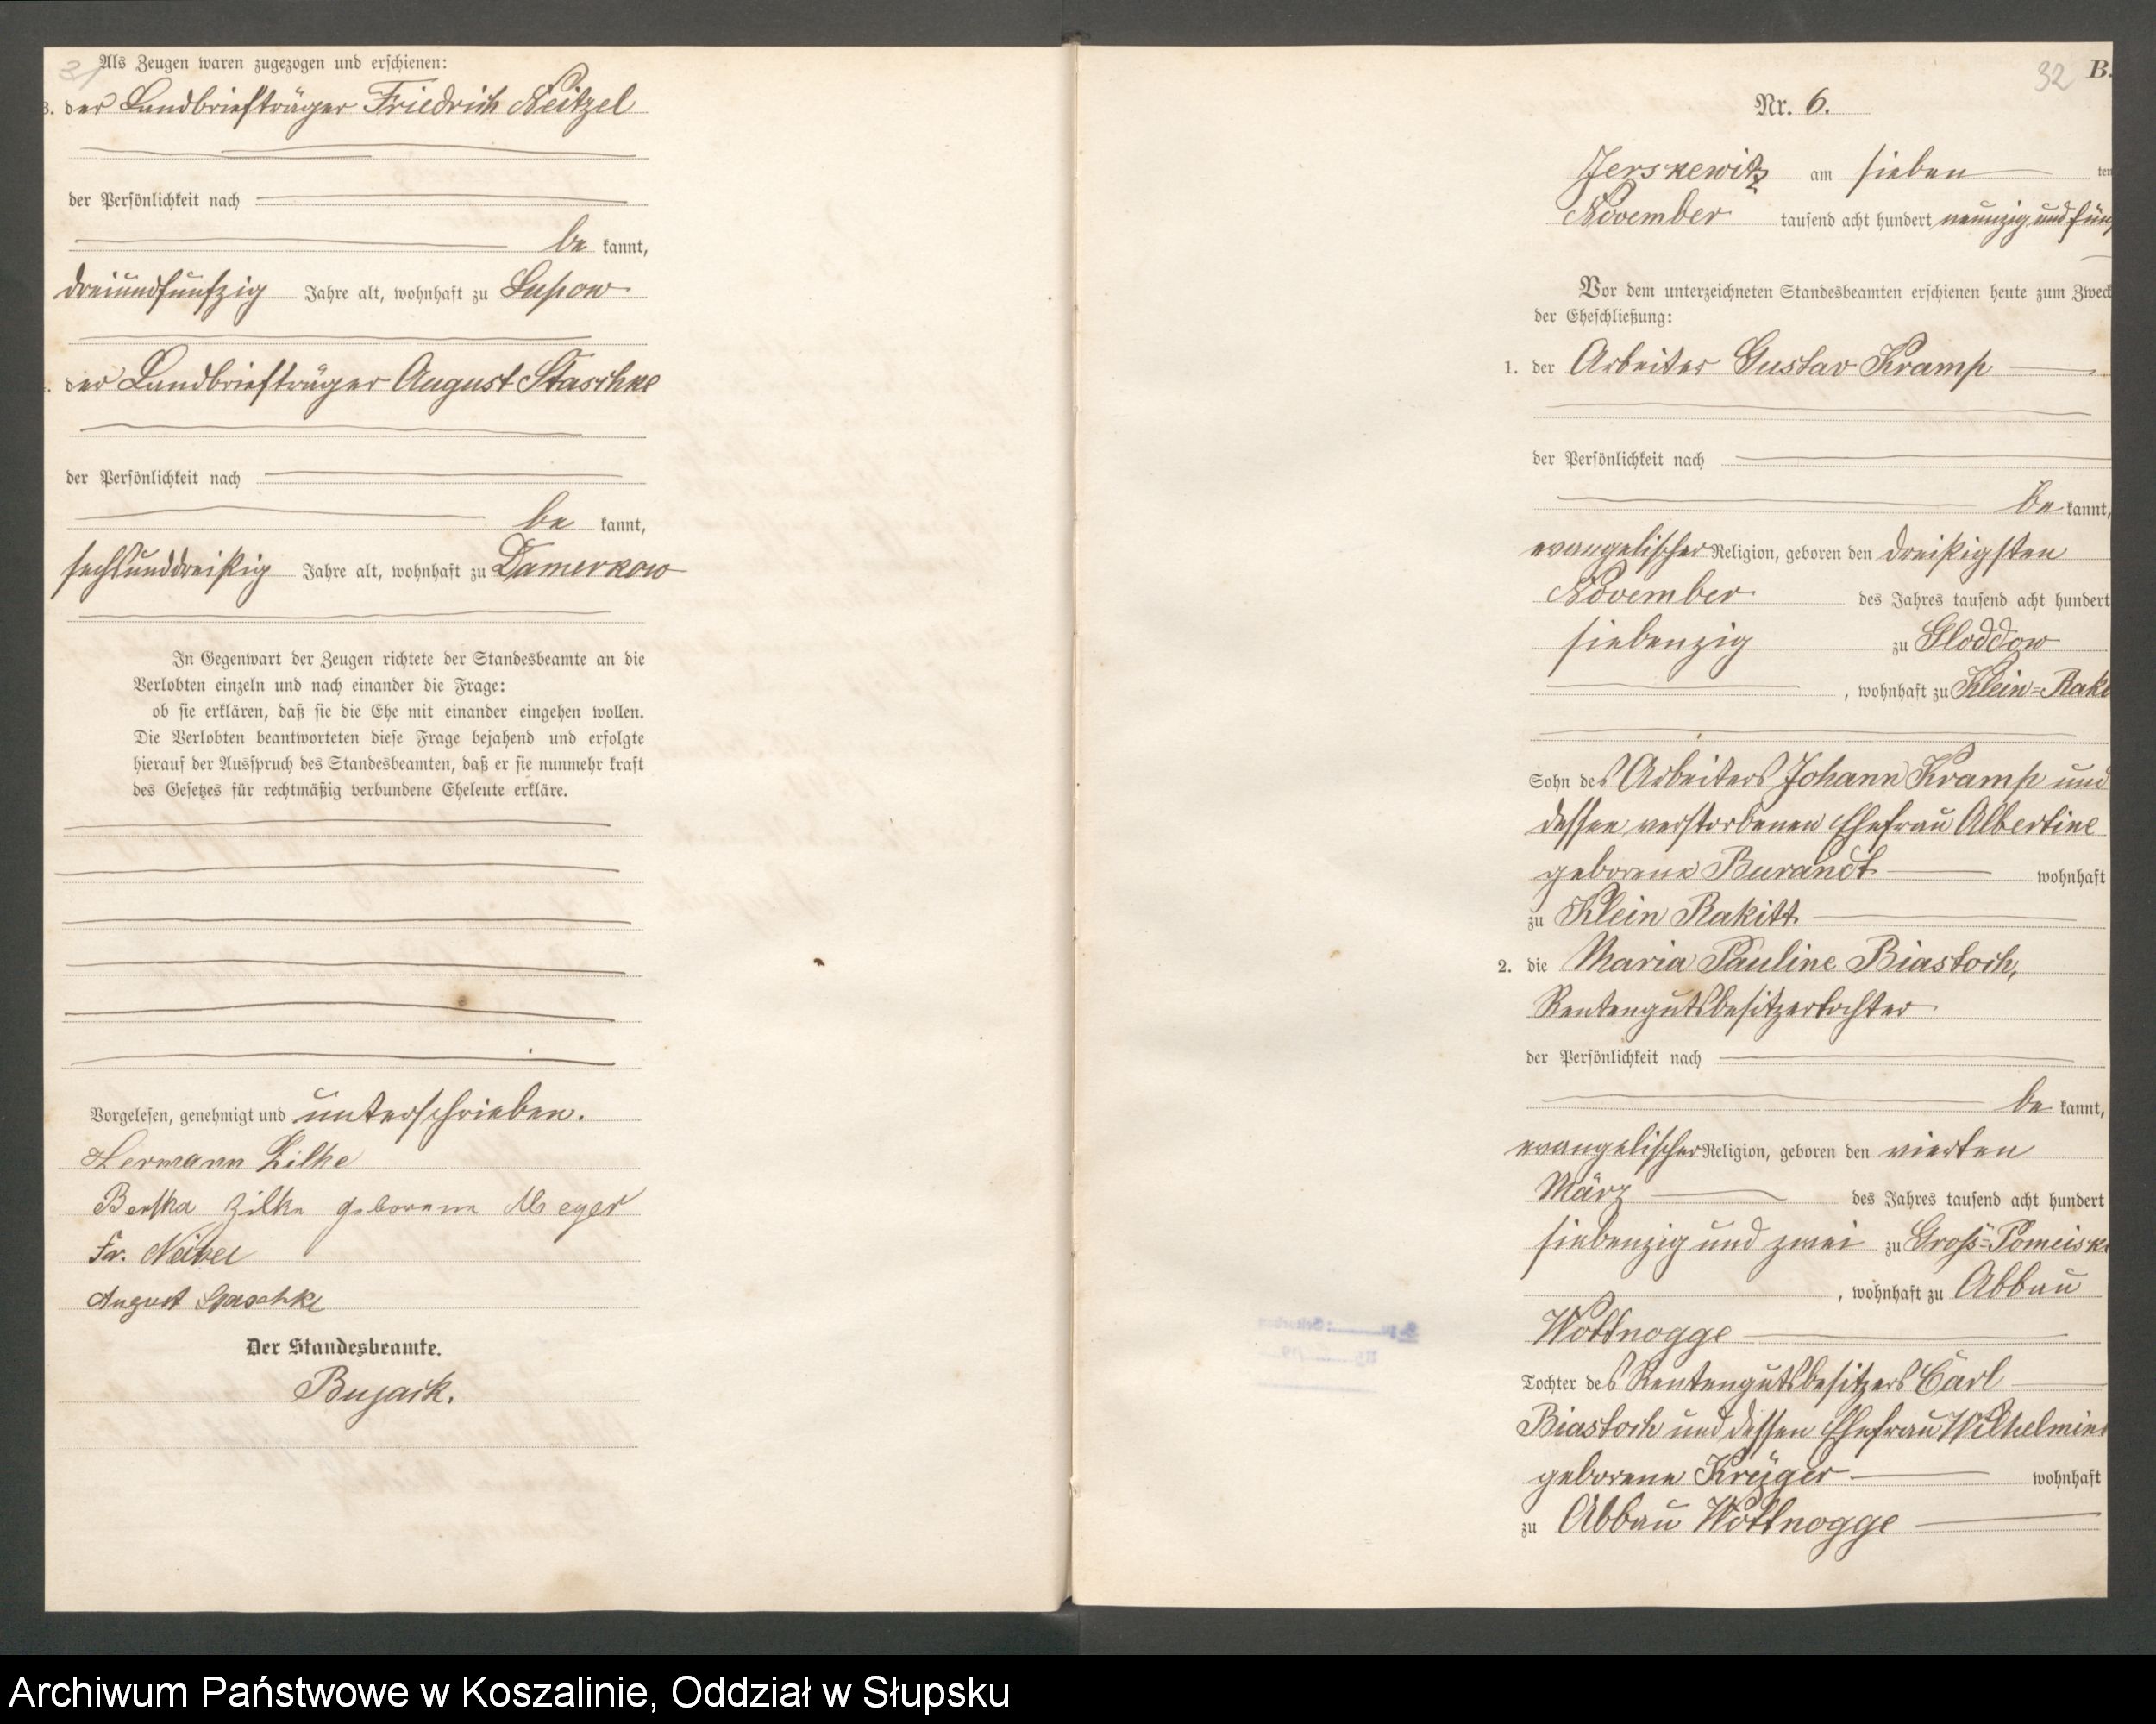 31
Als Zeugen waren zugezogen und erschienen:
3. der Landbriefträger Friedrich Neitzel
der Persönlichkeit nach
be kannt,
dreiundfünfzig Jahre alt, wohnhaft zu Lupow
der Landbriefträger August Staschke
der Persönlichkeit nach
be kannt,
sechsunddreißig Jahre alt, wohnhaft zu Damerkow
In Gegenwart der Zeugen richtete der Standesbeamte an die
Verlobten einzeln und nach einander die Frage:
ob sie erklären, daß sie die Ehe mit einander eingehen wollen.
Die Verlobten beantworteten diese Frage bejahend und erfolgte
hierauf der Ausspruch des Standesbeamten, daß er sie nunmehr kraft
des Gesetzes für rechtmäßig verbundene Eheleute erkläre.
Vorgelesen, genehmigt und unterschrieben.
Hermann Zilke
Bertha Zilke geborene Meyer
Fr. Neitzel
August Staschke
Der Standesbeamte.
Bujack.
32 B.
Nr. 6.
Jerskewitz am sieben ten
November tausend acht hundert neunzig und fün
Vor dem unterzeichneten Standesbeamten erschienen heute zum Zweck
der Eheschließung:
1. der Arbeiter Gustav Kramp
der Persönlichkeit nach
be kannt,
evangelischer Religion, geboren den dreißigsten
November des Jahres tausend acht hundert
siebenzig zu Gloddow
, wohnhaft zu Klein=Raki
Sohn des Arbeiters Johann Kramp und
dessen verstorbenen Ehefrau Albertine
geborene Burandt wohnhaft
zu Klein Rakitt
2. die Maria Pauline Biastoch,
Rentengutsbesitzertochter
der Persönlichkeit nach
be kannt,
evangelischer Religion, geboren den vierten
März des Jahres tausend acht hundert
siebenzig und zwei zu Groß=Pomeisk
, wohnhaft zu Abbau
Wottnogge
Tochter des Rentengutsbesitzers Carl
Biastoch und dessen Ehefrau Wilhelmine
geborene Krüger wohnhaft
zu Abbau Wottnogge
Archiwum Państwowe w Koszalinie, Oddział w Słupsku